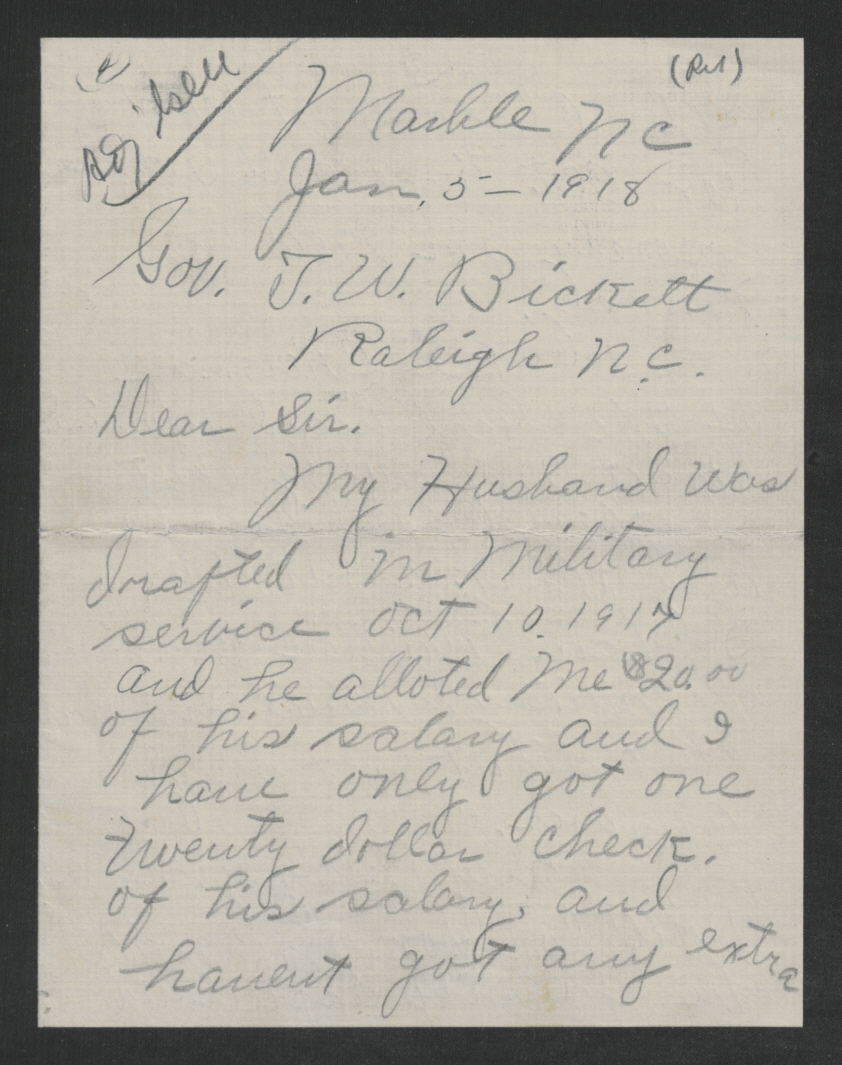 (Ref)
Marble NC
Jan, 5 - 1918
Gov. T. W. Bickett
Raleigh N.C.
Dear Sir.
My Husband was
drafted in Military
service Oct 10. 1917
and he alloted Me $20.00
of his salary and I
have only got one
twenty dollar check.
of his salary, and
havent got any extra